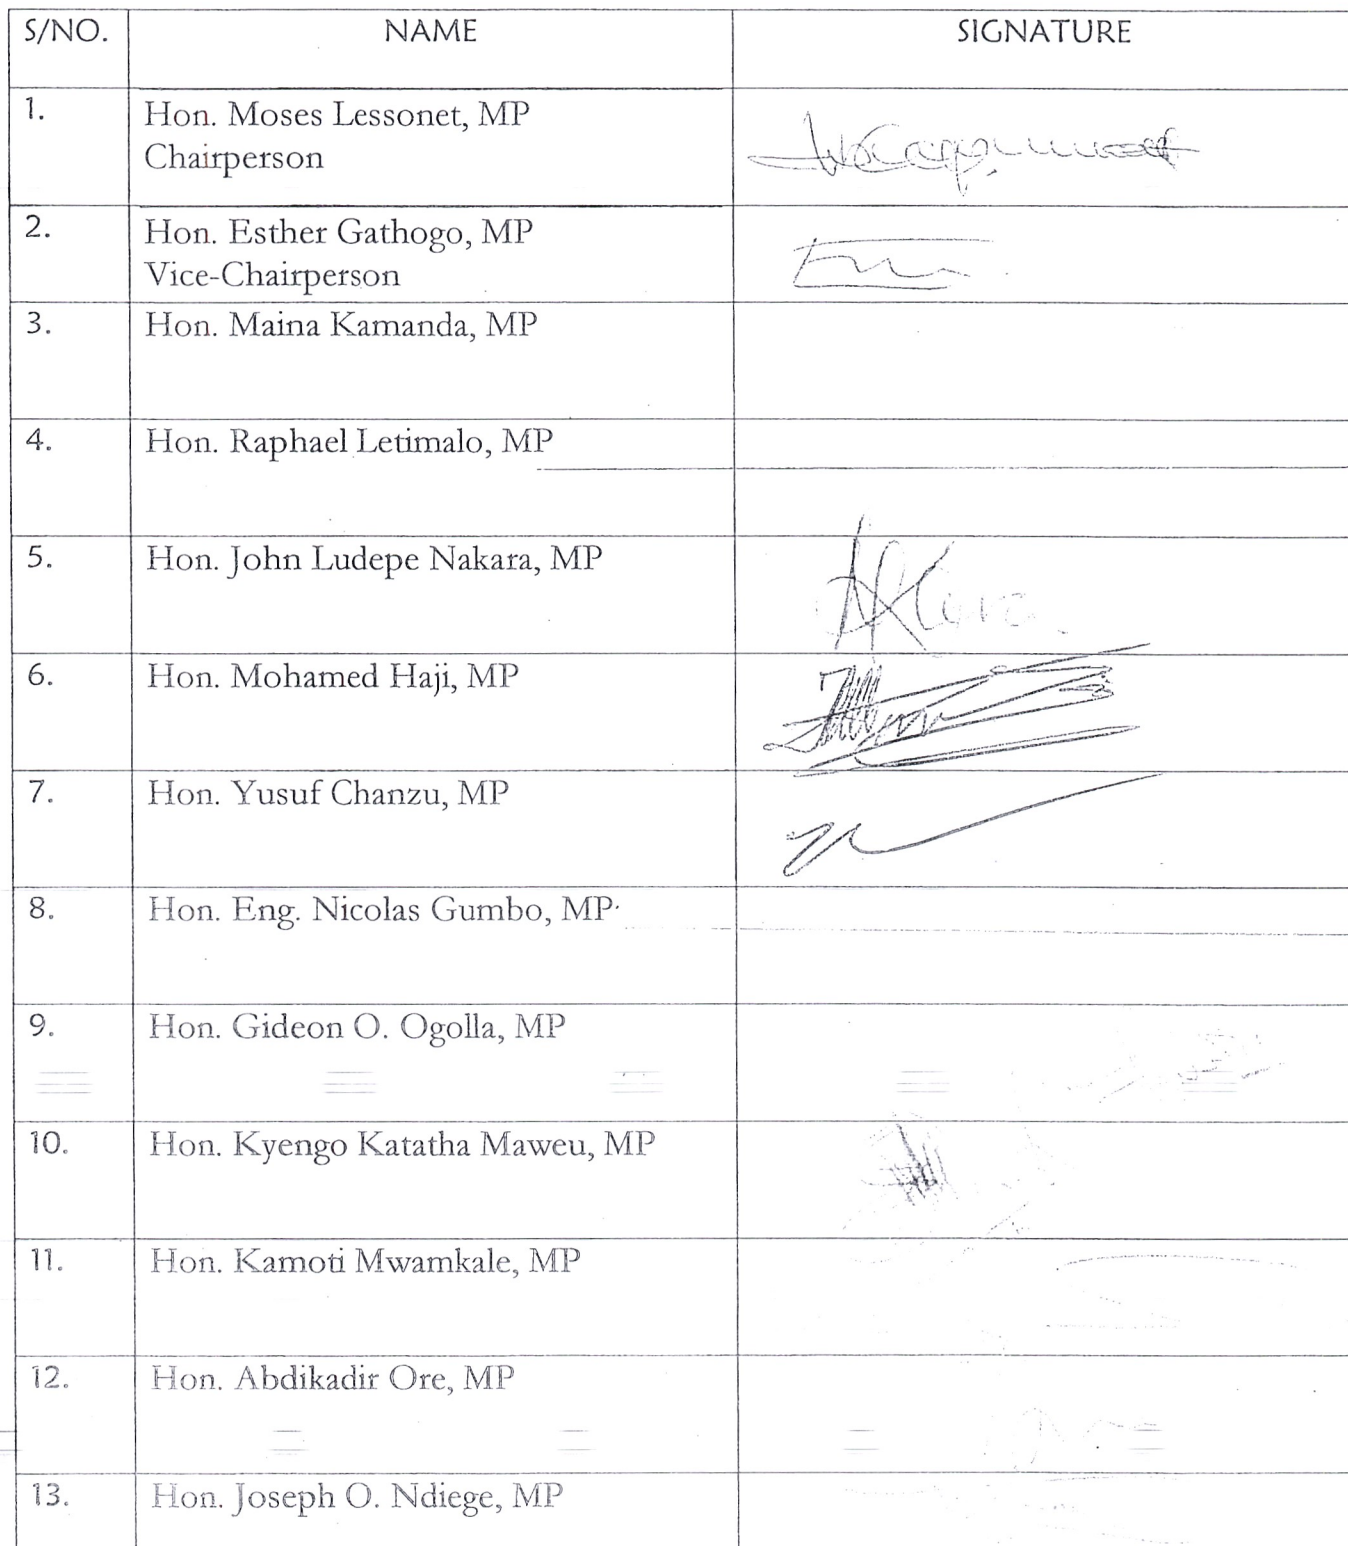 S/NO. NAME SIGNATURE
1. Hon. Moses Lessonet, MP
Chairperson
2. Hon. Esther Gathogo, MP
Vice-Chairperson
3. Hon. Maina Kamanda, MP
4. Hon. Raphael Letimalo, MP
5. Hon. John Ludepe Nakara, MP
6. Hon. Mohamed Haji, MP
7. Hon. Yusuf Chanzu, MP
8. Hon. Eng. Nicolas Gumbo, MP
9. Hon. Gideon O. Ogolla, MP
10. Hon. Kyengo Katatha Maweu, MP
11. Hon. Kamoti Mwamkale, MP
12. Hon. Abdikadir Ore, MP
13. Hon. Joseph O. Ndiege, MP